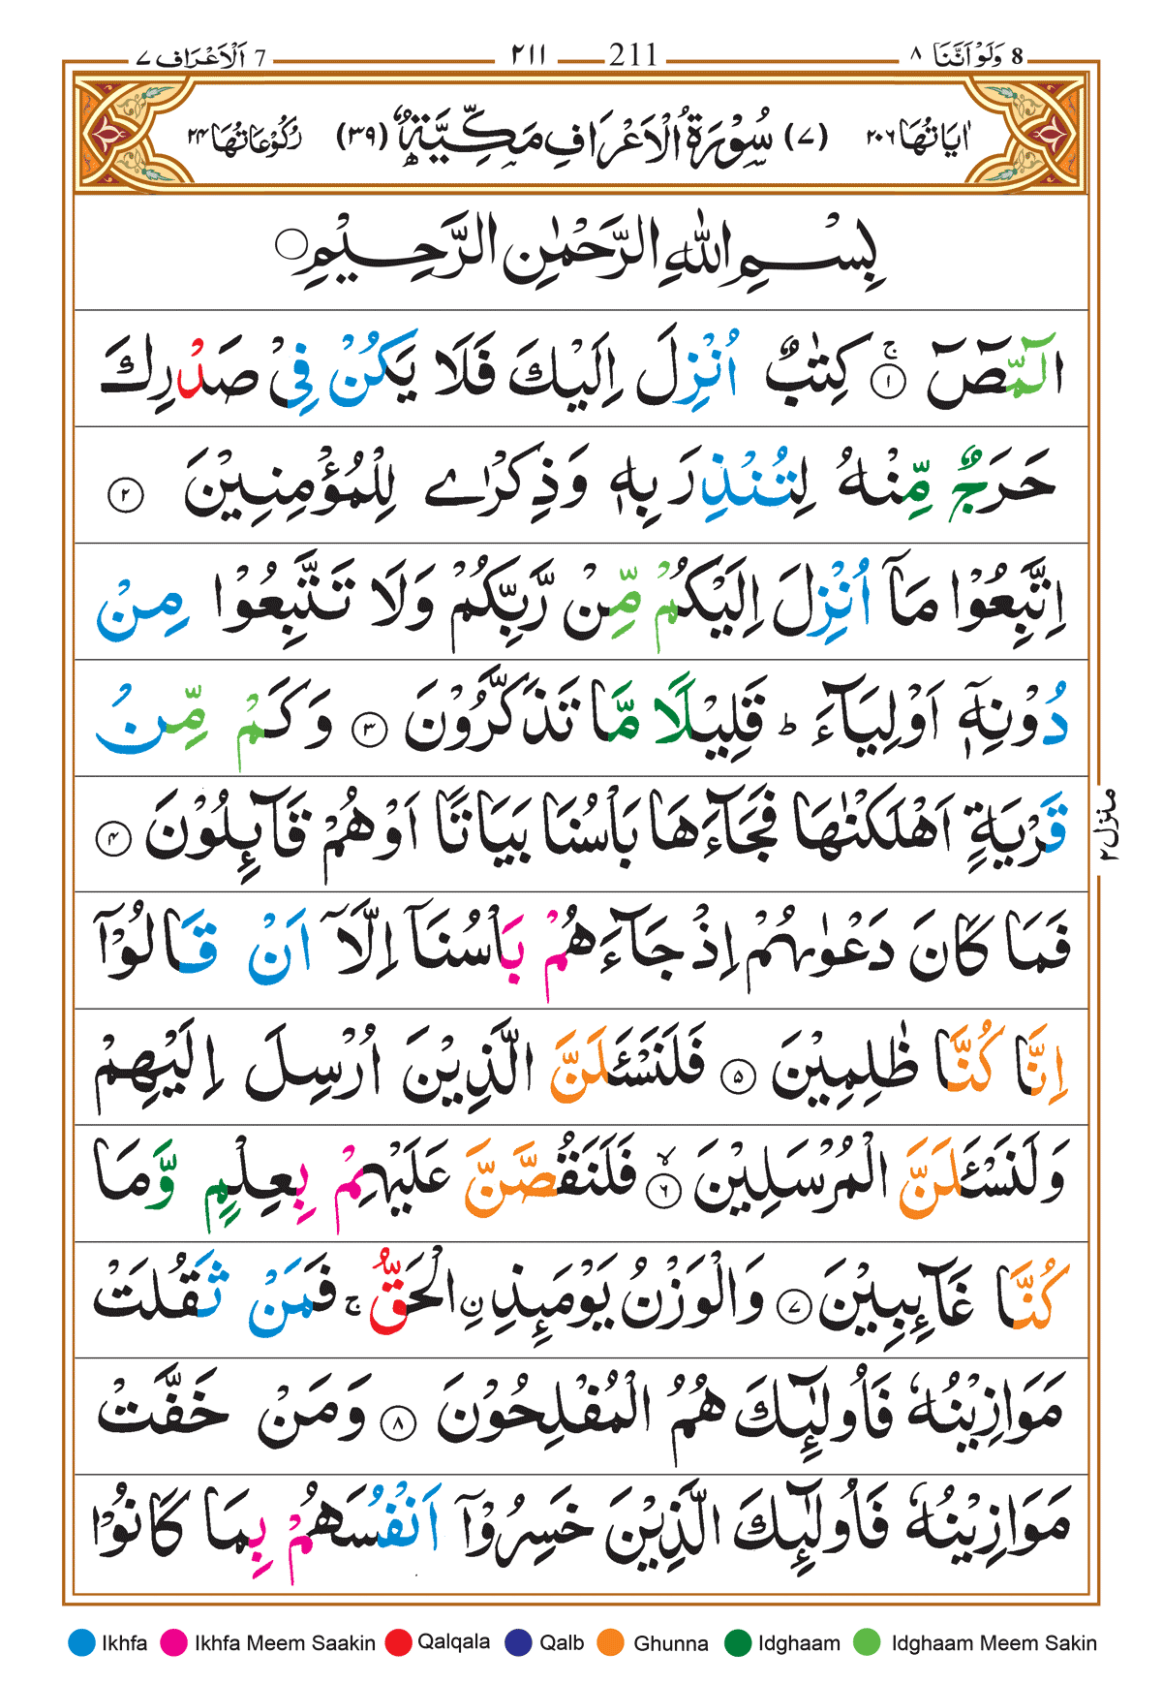 7 اَلْاَعْرَاف ٧ ٢١١ 211 8 وَلَوْ اَنَّنَا ٨
اٰيَاتُهَا ٢٠٦ (٧) سُوْرَةُ الْاَعْرَافِ مَكِّيَّةٌ (٣٩) رُكُوْعَاتُهَا ٢٤
بِسْمِ اللّٰهِ الرَّحْمٰنِ الرَّحِيْمِ
الٓمّٓصٓ ۚ ١ كِتٰبٌ اُنْزِلَ اِلَيْكَ فَلَا يَكُنْ فِيْ صَدْرِكَ
حَرَجٌ مِّنْهُ لِتُنْذِرَ بِهٖ وَذِكْرٰى لِلْمُؤْمِنِيْنَ ٢
اِتَّبِعُوْا مَآ اُنْزِلَ اِلَيْكُمْ مِّنْ رَّبِّكُمْ وَلَا تَتَّبِعُوْا مِنْ
دُوْنِهٖٓ اَوْلِيَآءَ ؕ قَلِيْلًا مَّا تَذَكَّرُوْنَ ٣ وَكَمْ مِّنْ
قَرْيَةٍ اَهْلَكْنٰهَا فَجَآءَهَا بَاْسُنَا بَيَاتًا اَوْ هُمْ قَآئِلُوْنَ ٤
فَمَا كَانَ دَعْوٰىهُمْ اِذْ جَآءَهُمْ بَاْسُنَآ اِلَّآ اَنْ قَالُوْٓا
اِنَّا كُنَّا ظٰلِمِيْنَ ٥ فَلَنَسْئَلَنَّ الَّذِيْنَ اُرْسِلَ اِلَيْهِمْ
وَلَنَسْئَلَنَّ الْمُرْسَلِيْنَ ۙ ٦ فَلَنَقُصَّنَّ عَلَيْهِمْ بِعِلْمٍ وَّمَا
كُنَّا غَآئِبِيْنَ ٧ وَالْوَزْنُ يَوْمَئِذِنِ الْحَقُّ ۚ فَمَنْ ثَقُلَتْ
مَوَازِيْنُهٗ فَاُولٰٓئِكَ هُمُ الْمُفْلِحُوْنَ ٨ وَمَنْ خَفَّتْ
مَوَازِيْنُهٗ فَاُولٰٓئِكَ الَّذِيْنَ خَسِرُوْٓا اَنْفُسَهُمْ بِمَا كَانُوْا
منزل ٢
Ikhfa Ikhfa Meem Saakin Qalqala Qalb Ghunna Idghaam Idghaam Meem Sakin